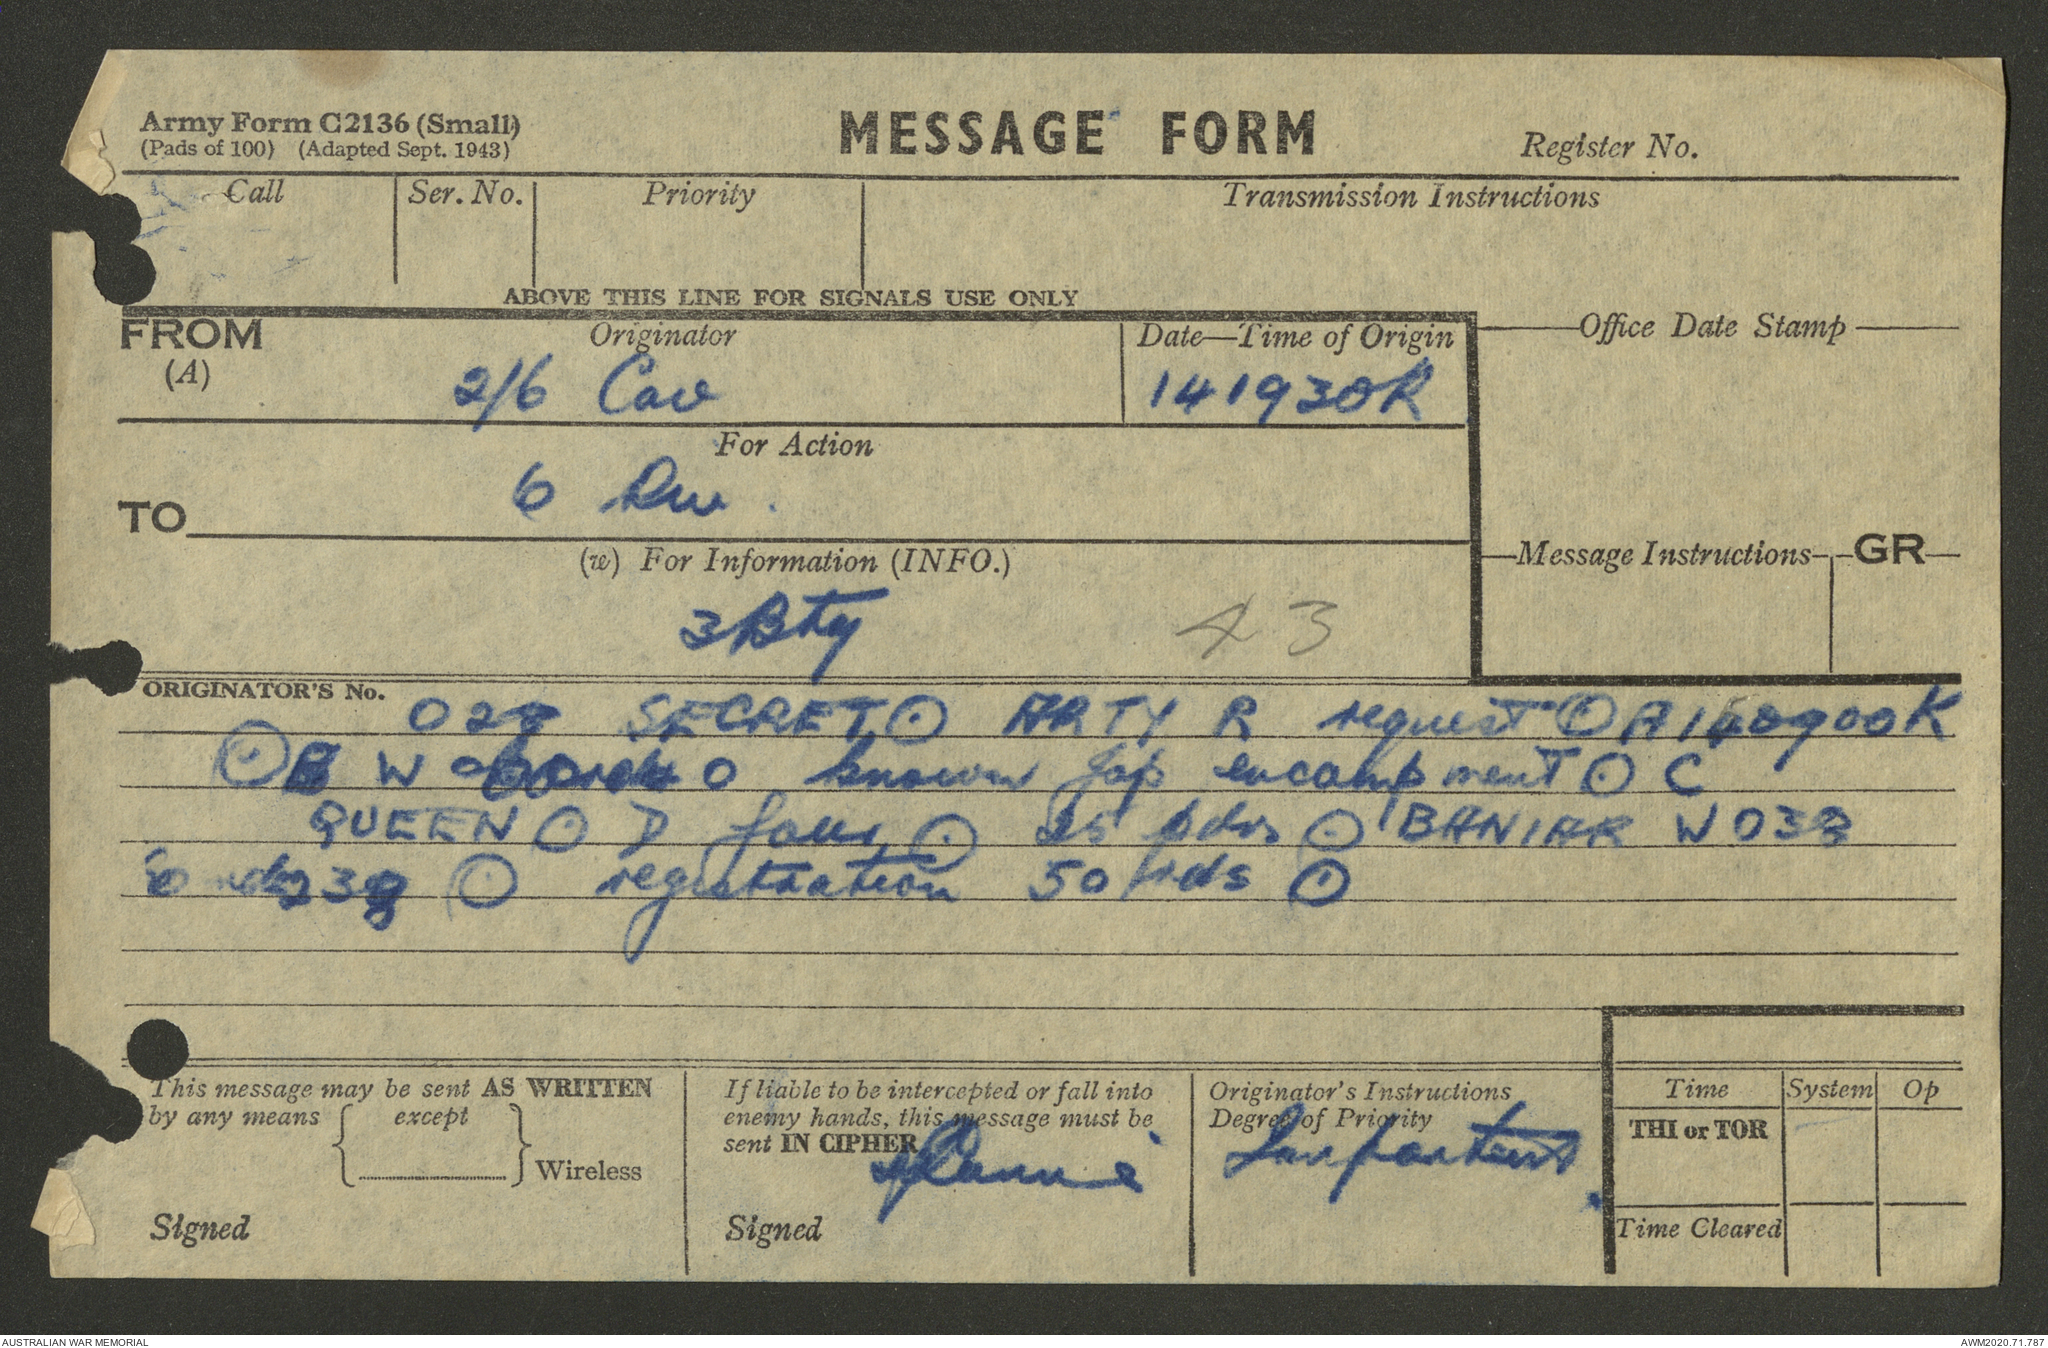 Army Form C2136 (Small)
(Pads of 100) (Adapted Sept. 1943)
MESSAGE FORM
Register No.
Call
Ser. No.
Priority
Transmission Instructions
ABOVE THIS LINE FOR SIGNALS USE ONLY
FROM
(A)
Originator
2/6 Cav
Date—Time of Origin
141930K
Office Date Stamp
For Action
TO
6 Div.
(w) For Information (INFO.)
3 Bty
43
Message Instructions
GR
ORIGINATOR'S No.
SECRET ⊙ ARTY R request ⊙ A
⊙ B W known Jap encampment ⊙ C
QUEEN ⊙ D four ⊙ 25 pdrs ⊙ BANIAR W
⊙ registration 50 rds ⊙
This message may be sent AS WRITTEN
by any means { except } Wireless
Signed
If liable to be intercepted or fall into
enemy hands, this message must be
sent IN CIPHER
Signed
Originator's Instructions
Degree of Priority
Important
Time
System
Op
THI or TOR
Time Cleared
AUSTRALIAN WAR MEMORIAL
AWM2020.71.787